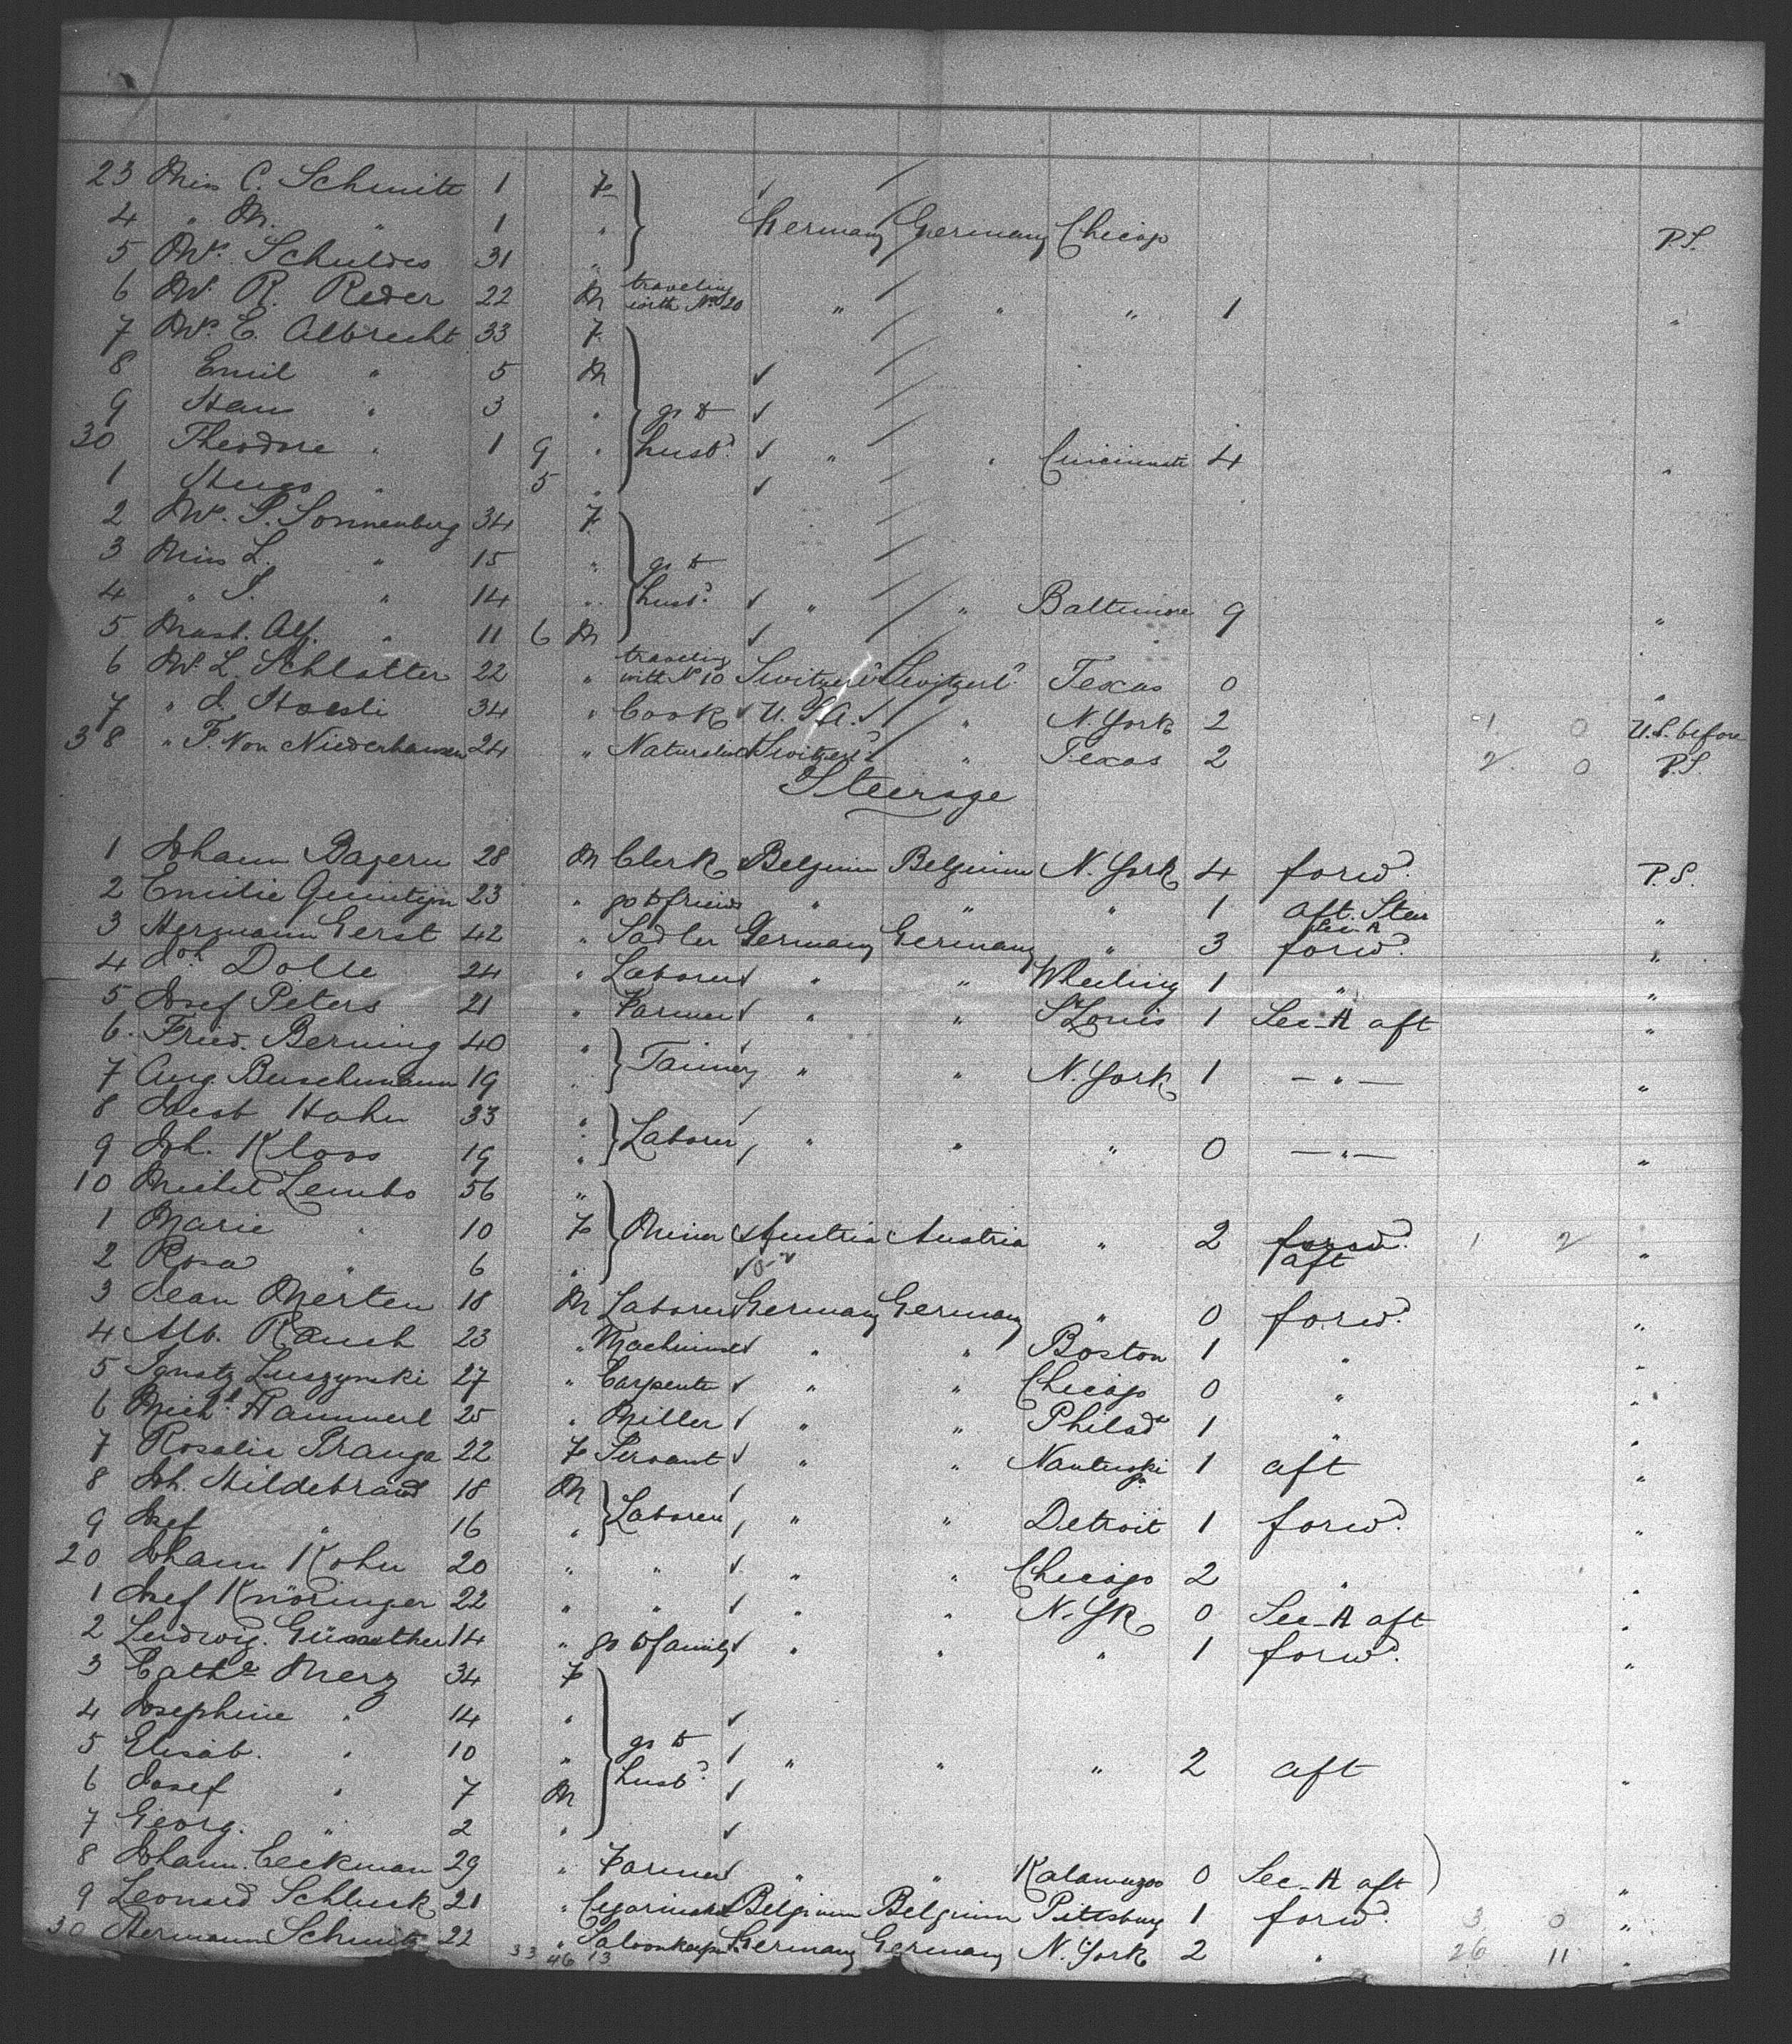 23 Miss C. Schmitt 1 F
4 " M. " 1 " Germany Germany Chicago P.S.
5 Mrs. Schuldes 31 "
6 Mr. R. Reder 22 M traveling with No 20 " " " 1 "
7 Mrs. E. Albrecht 33 F.
8 Emil " 5 M
9 Hans " 3 " go to
30 Theodore " 1 9 " husbd. " " Cincinnati 4 "
1 Hugo " 5 "
2 Mrs. S. Sonnenberg 34 F
3 Miss L. " 15 " go to
4 " S. " 14 " husbd. " " Baltimore 9 "
5 Mast. Alf. " 11 6 M
6 Mr. L. Schlatter 22 " traveling with No 10 Switzerld Switzerld Texas 0 "
7 " J. Hoesli 34 " Cook U.S.A. " N. York 2 1 0 U.S. before
38 " F. Von Niederhausen 24 " Naturalist Switzerld " Texas 2 2 0 P.S.
Steerage
1 Johann Bayern 28 M Clerk Belgium Belgium N. York 4 forwd. P.S.
2 Emilie Quintijn 23 " go to friends " " " 1 aft. Steer Sec A "
3 Hermann Gerst 42 " Sadler Germany Germany " 3 forwd. "
4 Joh Dolle 24 " Laborer " " Wheeling 1 " "
5 Josef Peters 21 " Farmer " " St Louis 1 Sec-A aft "
6. Fried. Berning 40 "
7 Aug. Buschmann 19 " Tanner " " N. York 1 — " — "
8 Hahn 33 "
9 Joh. Kloos 19 " Laborer " " " 0 — " — "
10 Michel Lembo 56 "
1 Marie " 10 F Miner Austria Austria " 2 forwd. aft 1 2 "
2 Rosa " 6 "
3 Jean Merten 18 M Laborer Germany Germany " 0 forwd. "
4 Alb. Rauch 23 " Machinist " " Boston 1 " "
5 Ignatz Luszynski 27 " Carpenter " " Chicago 0 " "
6 Michl. Hammerl 25 " Miller " " Philada 1 " "
7 Rosalie Pranga 22 F Servant " " 1 aft "
8 Joh. Hildebrand 18 M
9 Josef " 16 " Laborer " " Detroit 1 forwd. "
20 Johann Kohn 20 " " " " Chicago 2 " "
1 Josef Knöringer 22 " " " " N. Yk 0 Sec-A aft "
2 Ludwig. Günther 14 " go to family " " " 1 forwd. "
3 Cathe Merz 34 F
4 Josephine " 14 "
5 Elisab. " 10 " go to
6 Josef " 7 M husbd. " " " 2 aft "
7 Georg. " 2 "
8 Johann. Eeckman 29 " Farmer " " Kalamazoo 0 Sec-A aft "
9 Leonard Schlusk 21 " Cigarmaker Belgium Belgium Pittsburg 1 forwd. 3 0 "
30 Hermann Schmitz 22 " Saloonkeeper Germany Germany N. York 2 " 26 11 "
33 46 13